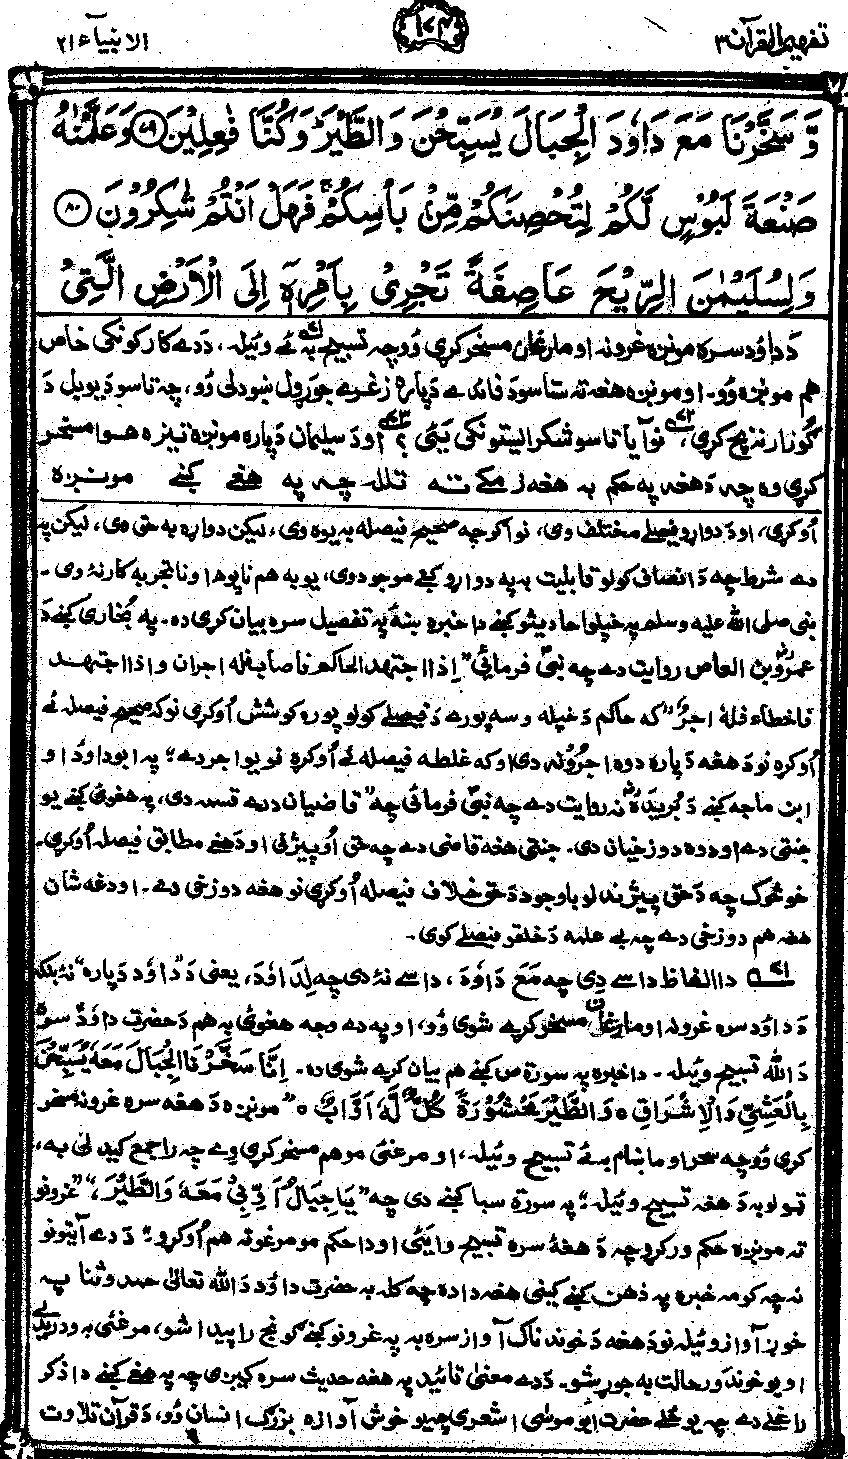 تفهیم القرآن ۳
۱۷۴
الانبیآء ۲۱
وَّ سَخَّرْنَا مَعَ دَاوٗدَ الْجِبَالَ يُسَبِّحْنَ وَالطَّيْرَ ؕ وَكُنَّا فٰعِلِيْنَ ﴿۷۹﴾ وَعَلَّمْنٰهُ
صَنْعَةَ لَبُوْسٍ لَّكُمْ لِتُحْصِنَكُمْ مِّنْۢ بَاْسِكُمْ ۚ فَهَلْ اَنْتُمْ شٰكِرُوْنَ ﴿۸۰﴾
وَلِسُلَيْمٰنَ الرِّيْحَ عَاصِفَةً تَجْرِيْ بِاَمْرِهٖۤ اِلَى الْاَرْضِ الَّتِيْ
دَ داوٗد سره مونږه غرونه او مارغان مسخر کړی وُو چه تسبیح به ئے وئیله، دَ دے کار کونکی خاص
هم مونږه وُو۔ او مونږه هغه ته ستاسو دَ فائدے دَپاره زغرے جوړول ښودلی وُو، چه تاسو دَ یو بل دَ
ګوزار نه بچ کړی، نو آیا تاسو شکر ایستونکی یئی؟ او دَ سلیمان دَپاره مونږه تیزه هوا مسخر
کړی وه چه دَ هغه په حکم به هغه زمکے ته تلله چه په هغے کښے مونږه
اُوکړی، او دَ دواړو فیصلے مختلف وی، نو اګرچه صحیح فیصله به یوه وی، لیکن دواړه به حق وی، لیکن په
دے شرط چه دَ انصاف کولو قابلیت به په دواړو کښے موجود وی، یو به هم ناپوه او ناتجربه کار نۀ وی۔
نبی صلی الله علیه وسلم په خپلو احادیثو کښے دا خبره ښۀ په تفصیل سره بیان کړی ده۔ په بُخاری کښے دَ
عمروؓ بن العاص روایت دے چه نبیؐ فرمائی "اِذا اجتهد الحاکم فاصاب فله اجران و اذا اجتهد
فاخطاء فلهٗ اجرٌ" که حاکم دَ خپله وسه پورے دَ فیصلے کولو پوره کوشش اُوکړی نو که صحیح فیصله ئے
اُوکړه نو دَ هغه دَپاره دوه اجرُونه دی او که غلطه فیصله ئے اُوکړه نو یو اجر دے؛ په ابوداوٗد او
ابن ماجه کښے دَ بُریدهؓ نه روایت دے چه نبیؐ فرمائی چه "قاضیان درے قسمه دی، په هغوی کښے یو
جنتی دے او دوه دوزخیان دی۔ جنتی هغه قاضی دے چه حق اُوپیژنی او دَ هغے مطابق فیصله اُوکړی۔
خو څوک چه دَ حق پیژندلو باوجود دَ حق خلاف فیصله اُوکړی نو هغه دوزخی دے۔ او دغه شان
هغه هم دوزخی دے چه بے علمه دَ خلقو فیصلے کوی۔
۷۱ دا الفاظ داسے دِی چه مَعَ دَاوٗدَ، داسے نۀ دی چه لِدَاوٗدَ، یعنی دَ "داوٗد دَپاره" نۀ بلکه
دَ داوٗد سره غرونه او مارغان مسخر کړے شوی وُو، او په دے وجه هغوی به هم دَ حضرت داوٗدؑ سره
دَ الله تسبیح وئیله۔ دا خبره په سورة ص کښے هم بیان کړے شوی ده۔ اِنَّا سَخَّرْنَا الْجِبَالَ مَعَهٗ يُسَبِّحْنَ
بِالْعَشِيِّ وَالْاِشْرَاقِ ه وَالطَّيْرَ مَحْشُوْرَةً ؕ كُلٌّ لَّهٗۤ اَوَّابٌ ه "مونږه دَ هغه سره غرونه مسخر
کړی وُو چه سحر او ماښام به ئے تسبیح وئیله، او مرغئ مو هم مسخر کړی وے چه راجمع کیدلی به،
ټولو به دَ هغه تسبیح وئیله"؛ په سورة سبا کښے دی چه "يٰجِبَالُ اَوِّبِيْ مَعَهٗ وَالطَّيْرَ"، "غرونو
ته مونږه حکم ورکړو چه دَ هغۀ سره تسبیح وایئی او دا حکم مو مرغو ته هم اُوکړو"؛ دَ دے آیتونو
نه چه کومه خبره په ذهن کښے کینی هغه دا ده چه کله به حضرت داوٗد دَ الله تعالیٰ حمد و ثنا په
خوږ آواز وئیله نو دَ هغه دَ خوند ناک آواز سره به په غرونو کښے ګونج راپیدا شو، مرغئ به ودریدلے
او یو خوندور حالت به جوړ شو۔ دَ دے معنیٰ تائید په هغه حدیث سره کیږی چه په هغے کښے دا ذکر
راغلے دے چه یو ځلے حضرت ابو موسٰی اشعری چه یو خوش آوازه بزرګ انسان وُو، دَ قرآن تلاوت